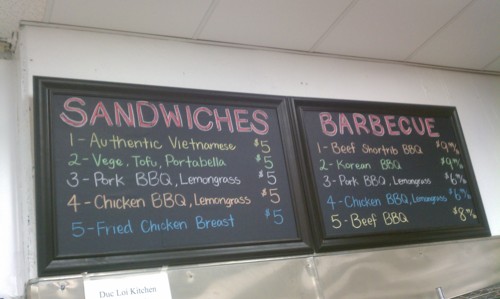 SANDWICHES
1 - Authentic Vietnamese $5
2 - Vege, Tofu, Portabella $5
3 - Pork BBQ, Lemongrass $5
4 - Chicken BBQ, Lemongrass $5
5 - Fried Chicken Breast $5
BARBECUE
1 - Beef Shortrib BBQ $9
2 - Korean BBQ $9
3 - Pork BBQ, Lemongrass $6
4 - Chicken BBQ, Lemongrass $6
5 - Beef BBQ $8
Duc Loi Kitchen